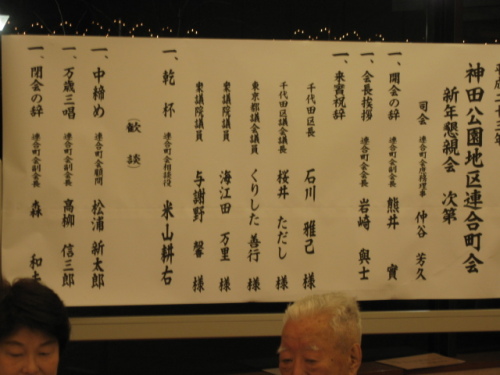 平成二十三年
神田公園地区連合町会
新年懇親会 次第
司会 連合町会庶務理事 仲谷 芳久
一、開会の辞 連合町会副会長 熊井 實
一、会長挨拶 連合町会会長 岩崎 與士
一、来賓祝辞
千代田区長 石川 雅己 様
千代田区議会議長 桜井 ただし 様
東京都議会議員 くりした 善行 様
衆議院議員 海江田 万里 様
衆議院議員 与謝野 馨 様
一、乾杯 連合町会相談役 米山 耕右
（歓談）
一、中締め 連合町会顧問 松浦 新太郎
一、万歳三唱 連合町会副会長 高柳 信三郎
一、閉会の辞 連合町会副会長 森 和